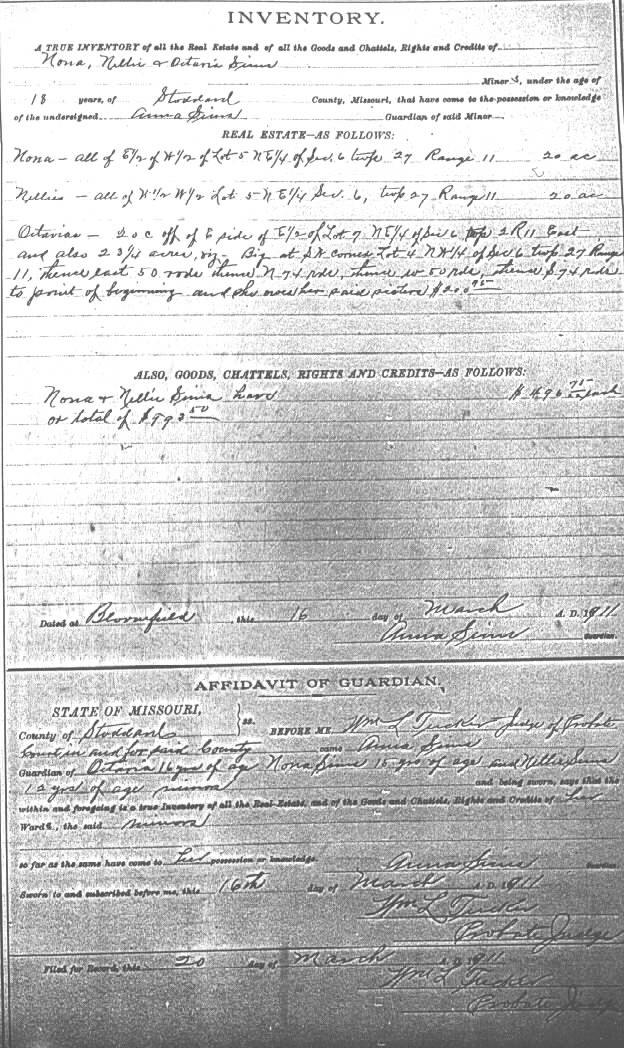 INVENTORY.
A TRUE INVENTORY of all the Real Estate and of all the Goods and Chattels, Rights and Credits of
Nona, Nellie & Octavia Sims
Minors, under the age of
18 years, of Stoddard County, Missouri, that have come to the possession or knowledge
of the undersigned Anna Sims Guardian of said Minor
REAL ESTATE—AS FOLLOWS:
Nona — all of E1/2 of W1/2 of Lot 5 N E1/4 of Sec. 6 twp 27 Range 11 20 ac
Nellies — all of W1/2 W1/2 Lot 5 N E1/4 Sec. 6, twp 27 Range 11 20 ac
Octavias — off of E side of E1/2 of Lot 7 N E1/4 of Sec 6 R 11 East
and also 2 3/4 acres, viz; Beg at S W corner Lot 4 N W1/4 of Sec 6 twp 27 Range
11, thence east 50 rods thence N 74 rds, thence w 50 rds, thence S 74 rds
to point of beginning and she owes her said sisters
ALSO, GOODS, CHATTELS, RIGHTS AND CREDITS—AS FOLLOWS:
Nona & Nellie Sims have each
or total of
Dated at Bloomfield this 16 day of March A. D. 1911
Anna Sims Guardian.
AFFIDAVIT OF GUARDIAN.
STATE OF MISSOURI,
County of Stoddard } ss. BEFORE ME, Wm L Tucker Judge of Probate
Court in and for said County came Anna Sims
Guardian of Octavia 16 yrs of age Nona Sims 15 yrs of age and Nellie Sims
12 yrs of age minors and being sworn, says that the
within and foregoing is a true Inventory of all the Real Estate, and of the Goods and Chattels, Rights and Credits of her
Wards, the said minors
so far as the same have come to her possession or knowledge. Anna Sims Guardian
Sworn to and subscribed before me, this 16th day of March A. D. 1911
Wm L Tucker
Probate Judge
Filed for Record, this 20 day of March A. D. 1911
Wm L Tucker
Probate Judge